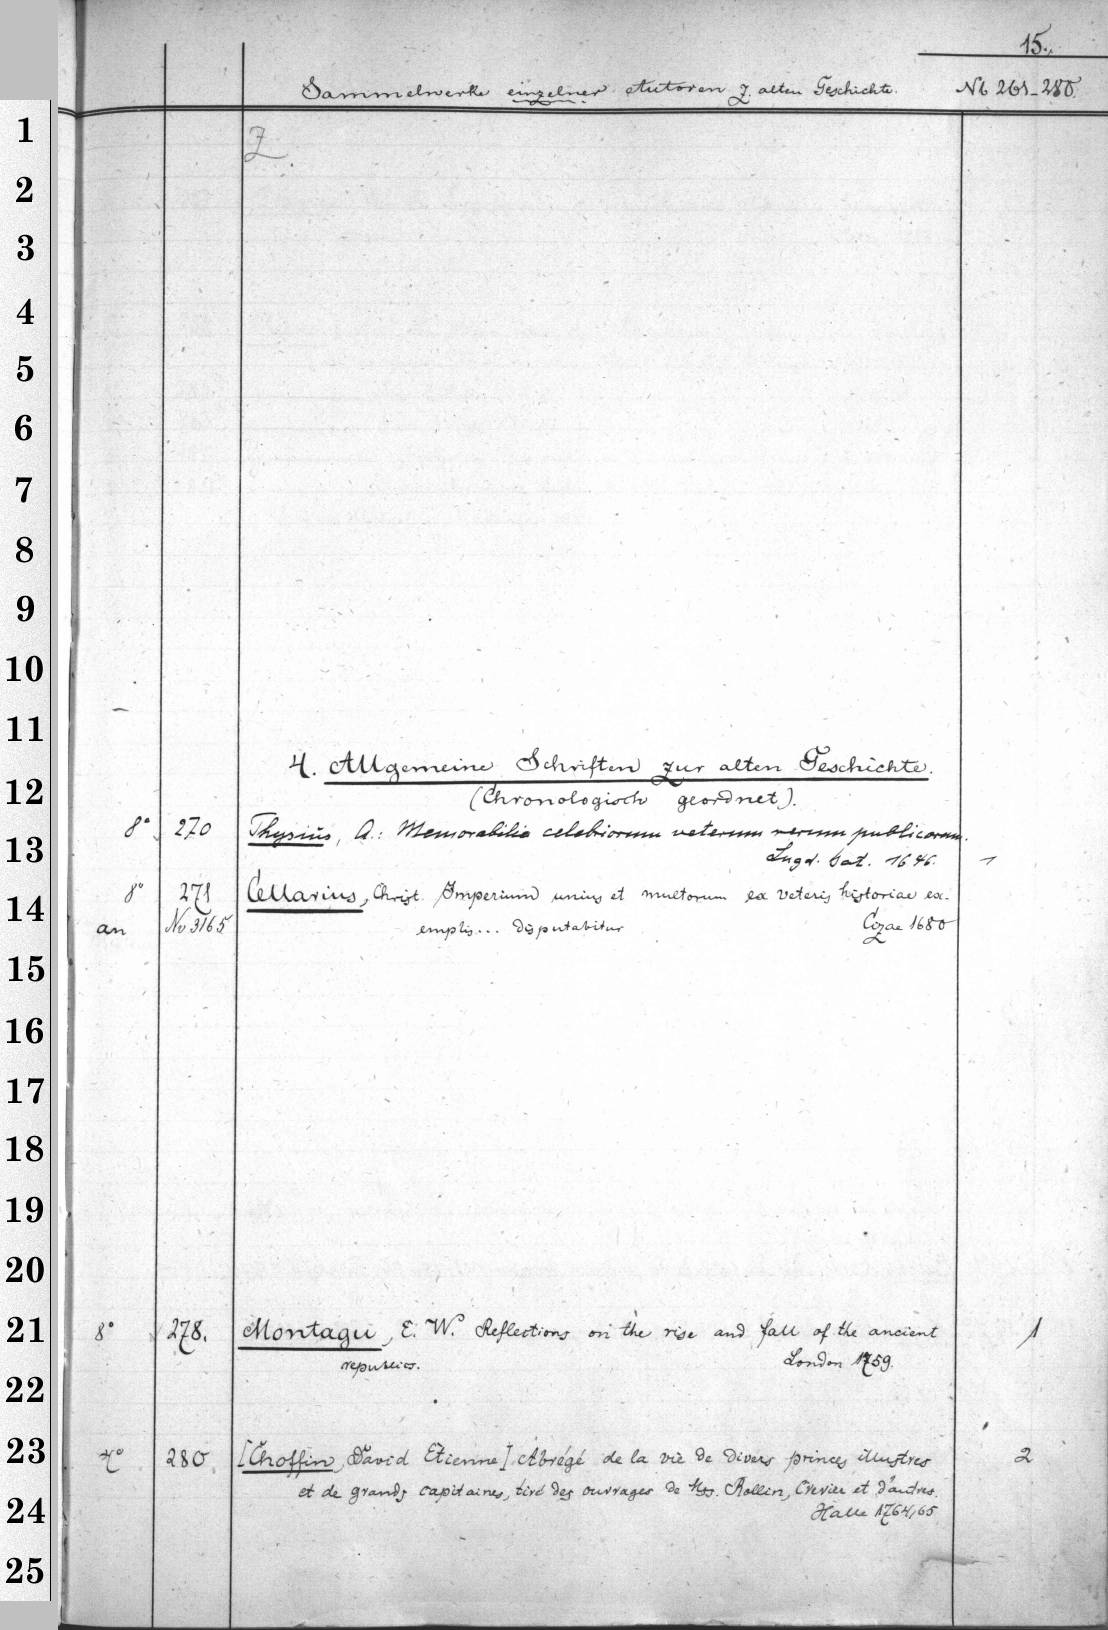 15.
Sammelwerke einzelner Autoren z. alten Geschichte. No 261-280.
1
Z
2
3
4
5
6
7
8
9
10
11
4. Allgemeine Schriften zur alten Geschichte.
12
(Chronologisch geordnet).
8° 270 Thysius, A.: Memorabilia celebriorum veterum rerum publicarum.
13
Lugd. bat. 1646. 1
8° 271 Cellarius, Christ. Imperium unius et multorum ex veteris historiae ex-
14
an No 3165 emplis... disputabitur Cizae 1680
15
16
17
18
19
20
21
8° 278. Montagu, E. W. Reflections on the rise and fall of the ancient 1
republics. London 1759.
22
23
4° 280 [Choffin, David Etienne] Abrégé de la vie de divers princes illustres 2
et de grands capitaines, tiré des ouvrages de Mss. Rollin, Crevier et d'autres.
24
Halle 1764,65
25